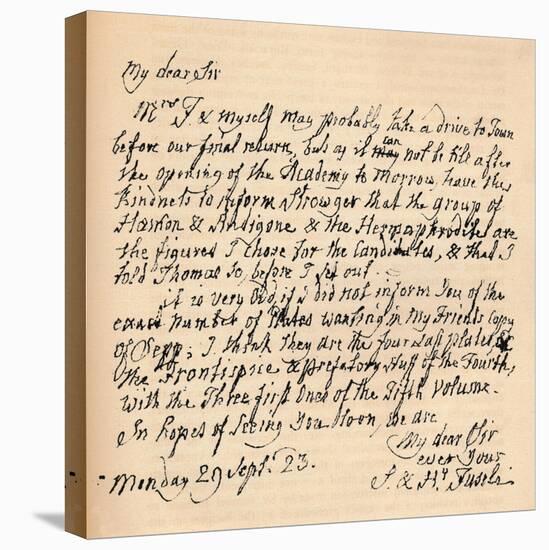 My dear Sir
Mrs F. & myself may probably take a drive to Town
before our final return, but as it can may not be till after
the opening of the Academy to Morrow, have the
Kindness to inform Strowger that the group of
Hæmon & Andigone & the Hermaphrodite are
the figures I chose for the Candidates, & that I
told Thomas so, before I set out.
it is very Odd, if I did not inform You of the
exact number of Plates wanting in my Friends Copy
of Sepp; I think they are the four Last plates of
the Frontispice & prefatory Stuff of the Fourth,
with the Three first Ones of the Fifth Volume.
In Hopes of Seeing You Soon, we are
My dear Sir
ever Yours
S. & Hy Fuseli
Monday 29 Sept. 23.